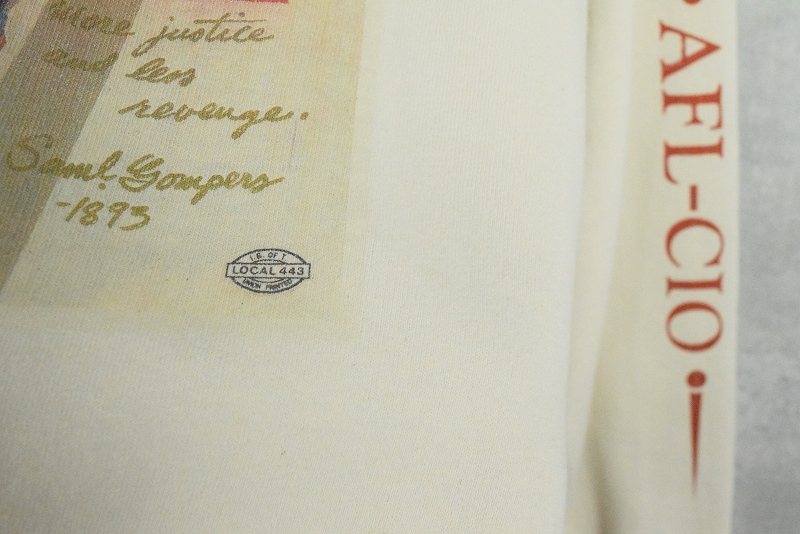 more justice
and less
revenge.
Saml. Gompers
-1893
I.B. OF T.
LOCAL 443
UNION PRINTED
AFL-CIO